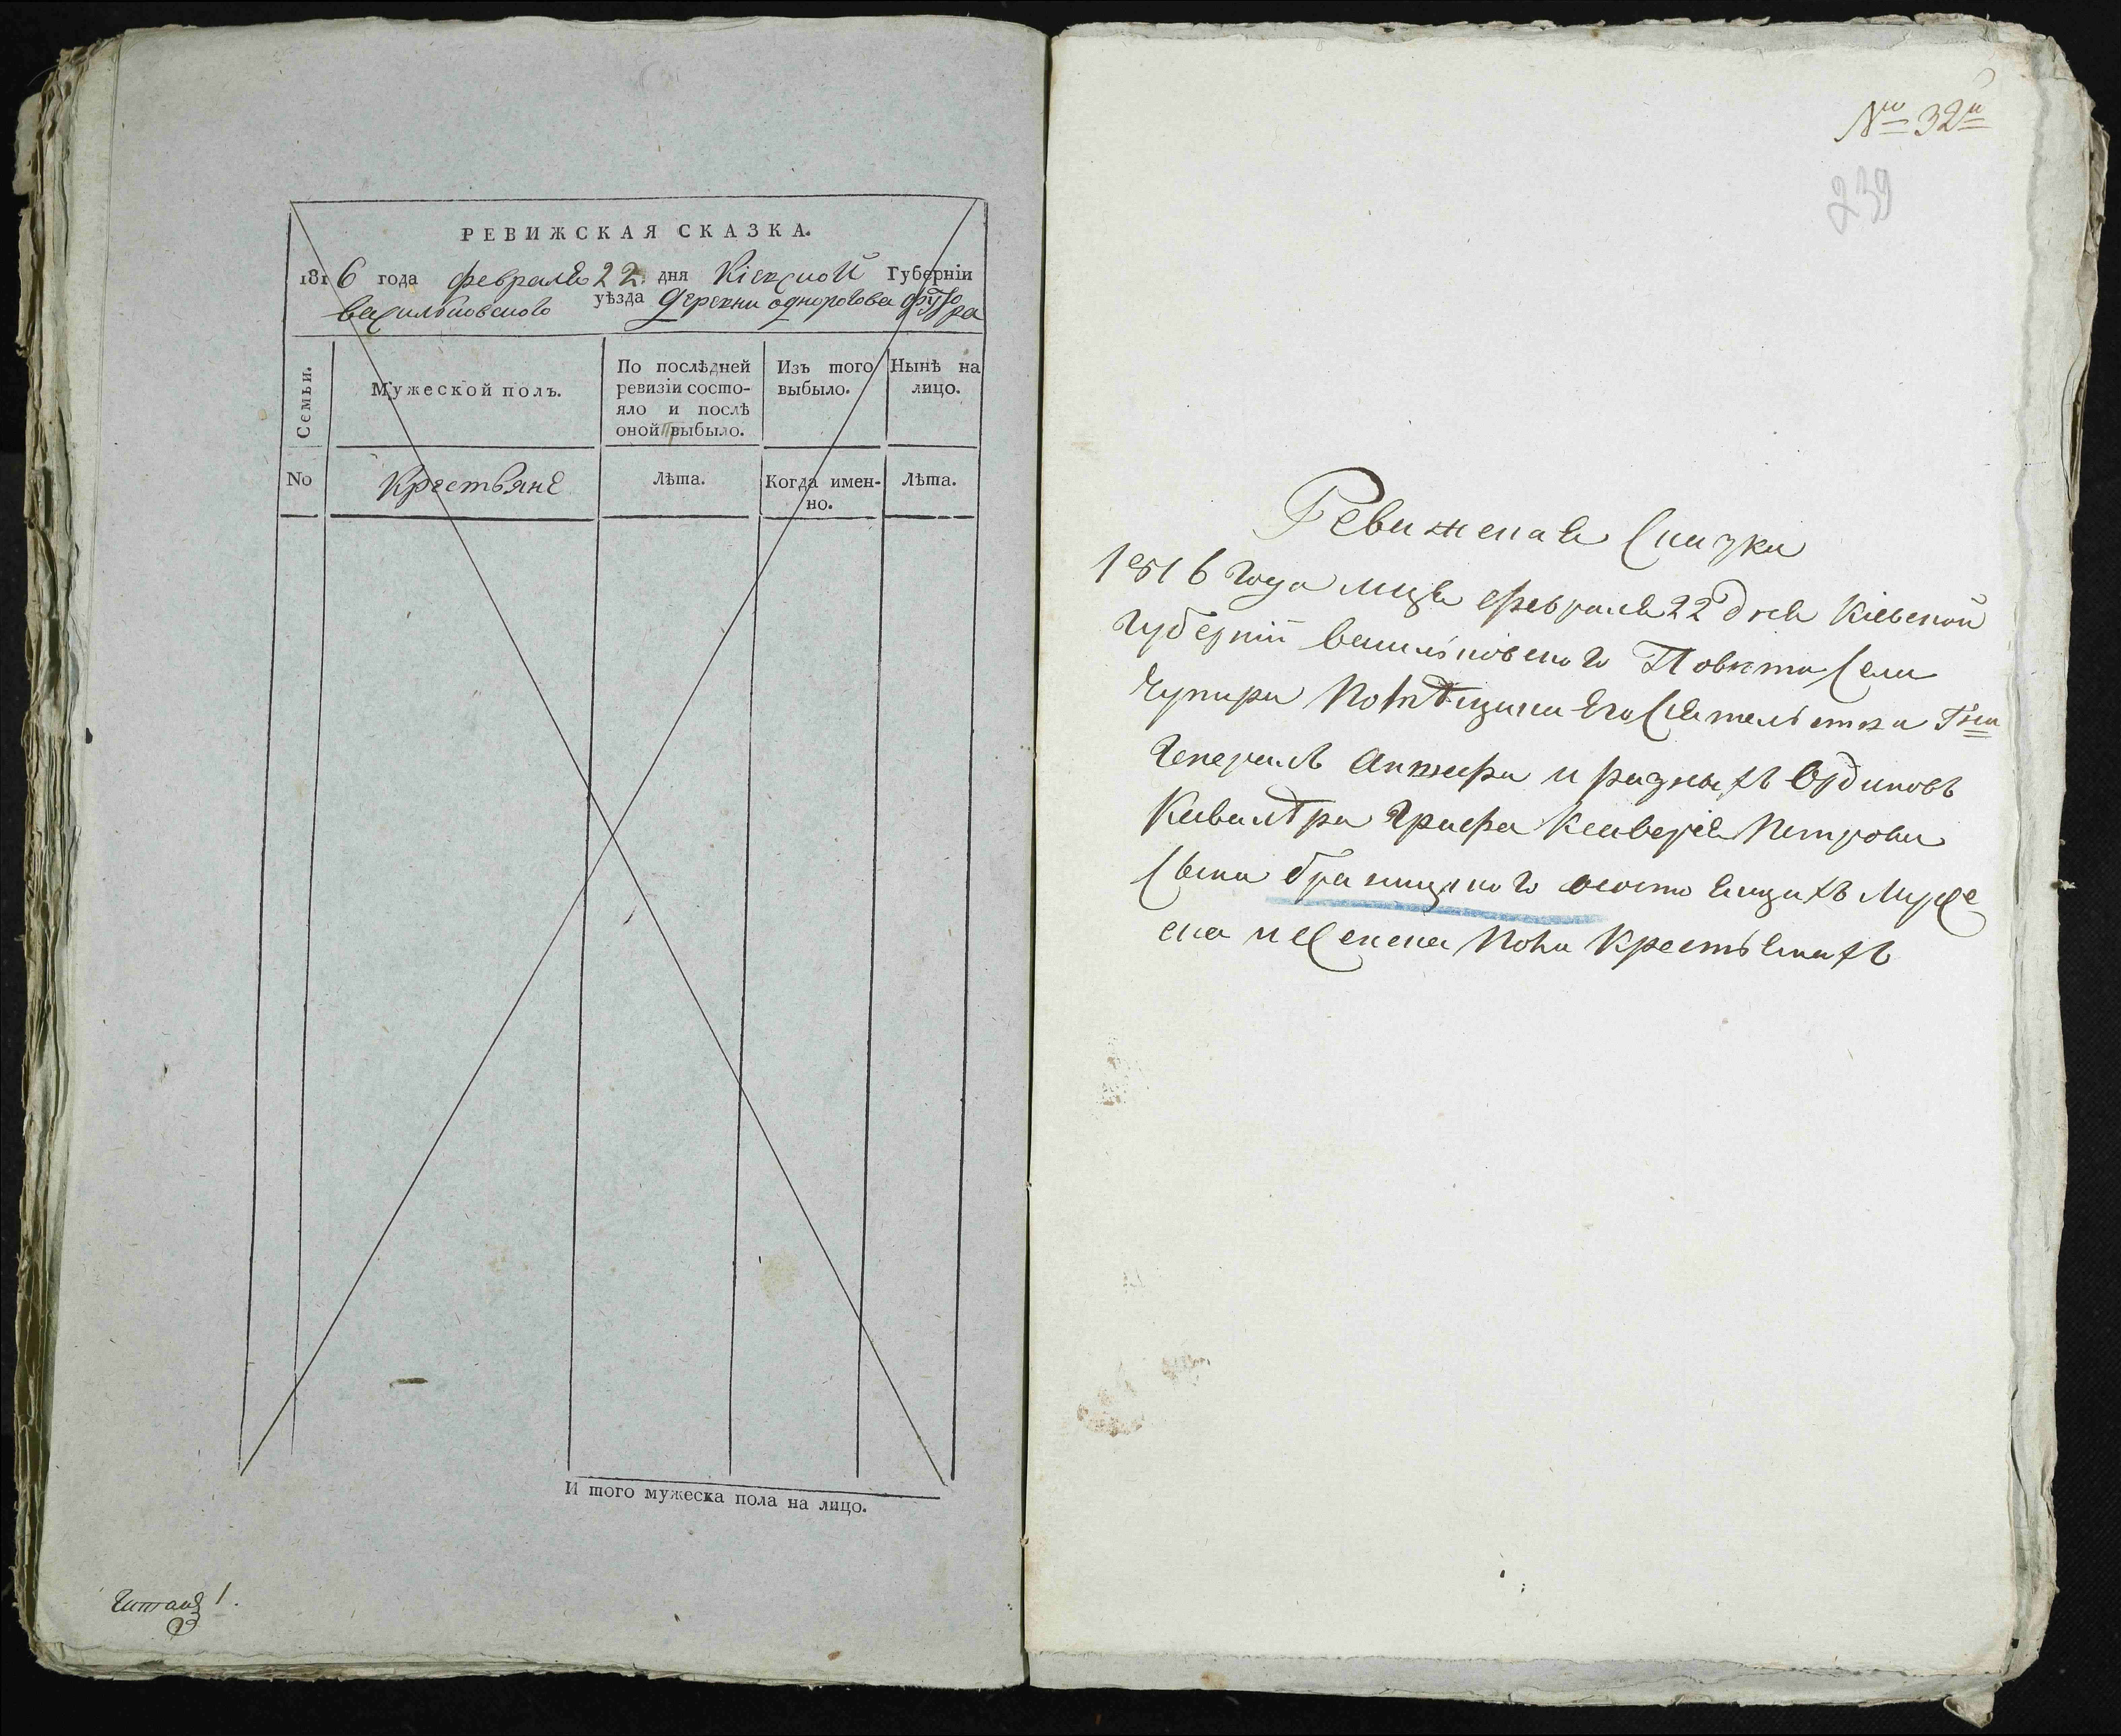 РЕВИЖСКАЯ СКАЗКА.
1816 года февраля 22 дня Кіевской Губерніи
васильковского уѣзда Деревни одноротова футора
Семьи.
Мужеской полъ.
По послѣдней
ревизіи состо-
яло и послѣ
оной выбыло.
Изъ того
выбыло.
Нынѣ на
лицо.
No
Крестьяне
Лѣта.
Когда имен-
но.
Лѣта.
И того мужеска пола на лицо.
Читалъ
№ 32й
239
Ревижская Сказка
1816 Года мца февраля 22 дня Кіевской
Губерніи васильковского Повѣта Села
Чупыри Помѣщика Его Сіятельства Гна
Генералъ Аншефа и разныхъ Ординовъ
Кавалѣра Графа Ксаверія Петрова
Сына браницкого о состоящихъ Муже
ска и женска Пола Крестьянахъ